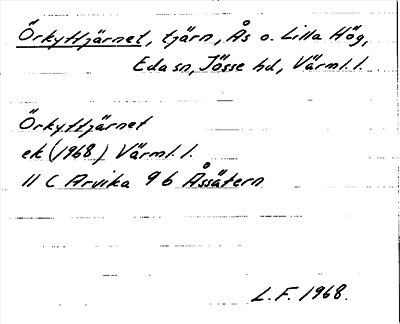 Örkyttjärnet, tjärn, Ås o. Lilla Hög,
Eda sn, Jösse hd, Värml. l.
Örkyttjärnet
ek (1968) Värml. l.
11 C Arvika 9 b Åssätern
L.F. 1968.